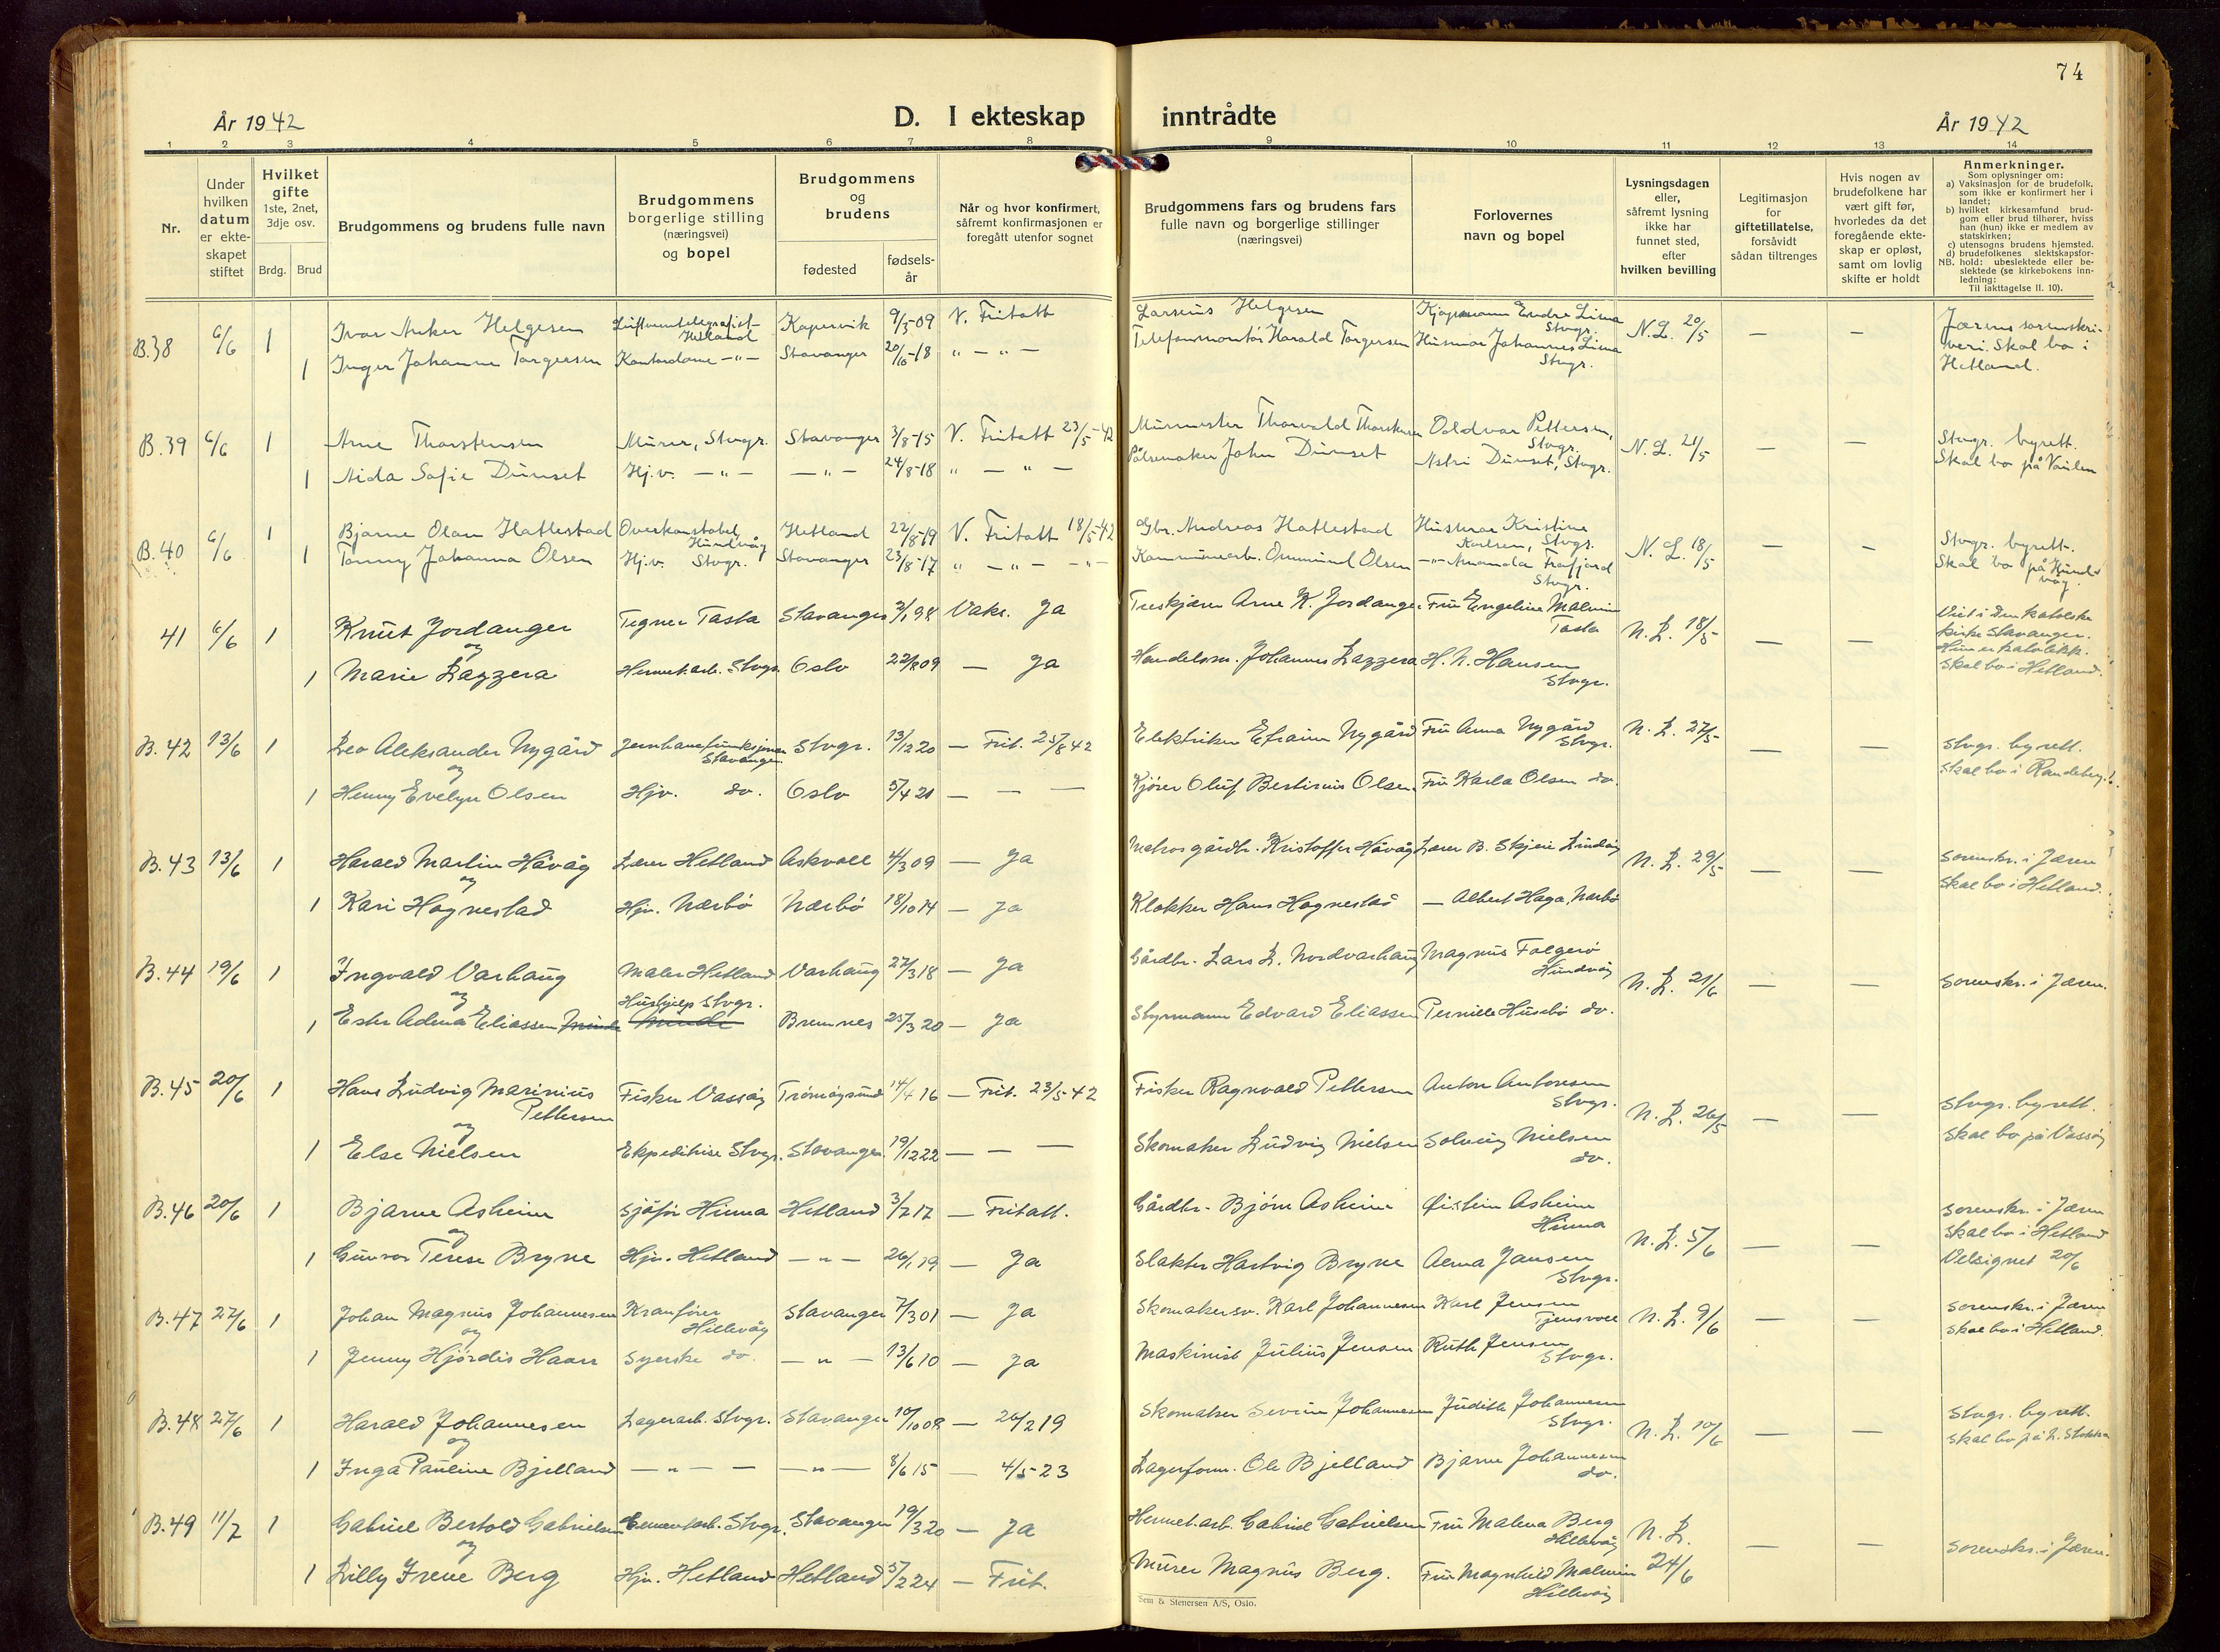 74
År 1942
D. I ekteskap inntrådte
År 1942
1 2 3 4 5 6 7 8 9 10 11 12 13 14
Nr.
Under hvilken datum er ekteskapet stiftet
Hvilket gifte 1ste, 2net, 3dje osv.
Brdg. Brud
Brudgommens og brudens fulle navn
Brudgommens borgerlige stilling (næringsvei) og bopel
Brudgommens og brudens
fødested
fødselsår
Når og hvor konfirmert, såfremt konfirmasjonen er foregått utenfor sognet
Brudgommens fars og brudens fars fulle navn og borgerlige stillinger (næringsvei)
Forlovernes navn og bopel
Lysningsdagen eller, såfremt lysning ikke har funnet sted, efter hvilken bevilling
Legitimasjon for giftetillatelse, forsåvidt sådan tiltrenges
Hvis nogen av brudefolkene har vært gift før, hvorledes da det foregående ekteskap er opløst, samt om lovlig skifte er holdt
Anmerkninger.
Som oplysninger om:
a) Vaksinasjon for de brudefolk, som ikke er konfirmert her i landet;
b) hvilket kirkesamfund brudgom eller brud tilhører, hviss han (hun) ikke er medlem av statskirken;
c) utensogns brudens hjemsted.
d) brudefolkenes slektskapsforhold: ubeslektede eller beslektede (se kirkebokens innledning:
NB. Til iakttagelse II. 10).
B.38 6/6 1 Ivar Anker Helgesen Luftverntelegrafist Hetland Kopervik 9/5-09 V. Fritatt Larsius Helgesen Kjøpmann Endre Lima Stvgr. N.L. 20/5 — — Jærens sorenskriveri. Skal bo i Hetland.
1 Inger Johanne Torgersen Kontordame -"- Stavanger 20/10-18 " - " - Telefonmontør Harald Torgersen Husmor Johannes Lima Stvgr.
B.39 6/6 1 Arne Thorstensen Murer, Stvgr. Stavanger 3/8-15 V. Fritatt 23/5-42 Murmester Thorvald Thorstensen Oddvar Pettersen, Stvgr. N.L. 21/5 — — Stvgr. byrett. Skal bo på Vaulen
1 Aida Sofie Dünset Hj.v. -"- -"- 24/8-18 " - " - Pølsemaker John Dünset Astri Dünset, Stvgr.
B.40 6/6 1 Bjarne Olan Hattestad Overkonstabel Hundvåg Hetland 22/8-19 V. Fritatt 18/5-42 Gbr. Andreas Hattestad Husmor Kristine Karlsen, Stvgr. N.L. 18/5 — — Stvgr. byrett. Skal bo på Hundvåg.
1 Tonny Johanna Olsen Hj.v. Stvgr. Stavanger 23/8-17 " - " - -"- Kommunearb. Ommund Olsen -"- Amanda Frafjord Stvgr.
41 6/6 1 Knut Jordanger Tegner Tasta Stavanger 2/1 98 Vaks. Ja Treskjærer Arne K. Jordanger Fru Engeline Malmin Tasta N.L. 18/5 — — Viet i den katolske kirke Stavanger. Hun er katolikk. Skal bo i Hetland.
og
1 Marie Lazzera Hermet.arb. Stvgr. Oslo 22/8 09 — Ja Handelsm. Johannes Lazzera H. N. Hansen Stvgr.
B.42 13/6 1 Leo Aleksander Nygård Jernbanefunksjonær Stavanger Stvgr. 13/12 20 — Frit. 25/8 42 Elektriker Efraim Nygård Fru Anna Nygård Stvgr. N.L. 27/5 — — Stvgr. byrett. Skal bo i Randeberg.
og
1 Henny Evelyn Olsen Hjv. do. Oslo 5/4 21 — — — Kjører Oluf Bertinius Olsen Fru Karla Olsen do.
B.43 13/6 1 Harald Martin Håvåg Lærer Hetland Askvoll 4/3 09 — Ja Matros gårdbr. Kristoffer Håvåg Lærer B. Skjeie Lindøy N.L. 29/5 — — Sorenskr. i Jæren Skal bo i Hetland.
og
1 Kari Hognestad Hjv. Nærbø Nærbø 18/10 14 — Ja Klokker Hans Hognestad — Albert Haga, Nærbø
B.44 19/6 1 Ingvald Varhaug Maler Hetland Varhaug 27/3 18 — Ja Gårdbr. Lars L. Nordvarhaug Magnus Folgerø Hundvåg N.L. 21/6 — — Sorenskr. i Jæren.
og
1 Ester Adina Eliassen Hushjelp Stvgr. Bremnes 25/3 20 — Ja Styrmann Edvard Eliassen Pernille Husebø do.
B.45 20/6 1 Hans Ludvig Marinius Pettersen Fisker Vassøy Tromøysund 14/4 16 — Frit. 23/5-42 Fisker Ragnvald Pettersen Anton Antonsen Stvgr. N.L. 26/5 — — Stvgr. byrett. Skal bo på Vassøy
og
1 Else Nielsen Ekspeditrise Stvgr. Stavanger 19/12 22 — — — Skomaker Ludvig Nielsen Solveig Nielsen do.
B.46 20/6 1 Bjarne Asheim Sjåfør Hinna Hetland 3/7 17 — Fritatt. Gårdbr. Bjørn Asheim Øistein Asheim Hinna N.L. 5/6 — — Sorenskr. i Jæren Skal bo i Hetland Velsignet 20/6
og
1 Gunvor Terese Bryne Hjv. Hetland -"- 26/1 19 — Ja Slakter Hartvig Bryne Alma Jansen Stvgr.
B.47 27/6 1 Johan Magnus Johannesen Kranfører Hillevåg Stavanger 7/3 01 — Ja Skomakersv. Karl Johannesen Karl Jensen Tjensvoll N.L. 9/6 — — Sorenskr. i Jæren Skal bo i Hetland.
og
1 Jenny Hjørdis Haarr Syerske do. -"- 13/6 10 — Ja Maskinist Julius Jensen Ruth Jensen Stvgr.
B.48 27/6 1 Harald Johannesen Lagerarb. Stvgr. Stavanger 10/10 08 — 26/2 19 Skomaker Severin Johannesen Judith Johannesen Stvgr. N.L. 10/6 — — Stvgr. byrett. Skal bo på L. Stokka
og
1 Inga Pauline Bjelland -"- — -"- 8/6 15 — 4/5-23 Lagerform. Ole Bjelland Bjarne Johannesen do.
B.49 11/7 1 Gabriel Bertold Gabrielsen Cementarb. Stvgr. Stavanger 19/3 20 — Ja Hermet.arb. Gabriel Gabrielsen Fru Malena Berg Hillevåg N.L. 24/6 — — Sorenskr. i Jæren.
og
1 Lilly Irene Berg Hjv. Hetland Hetland 5/2 24 — Frit. Murer Magnus Berg. Fru Magnhild Malmin Hillevåg
Sem & Stenersen A/S, Oslo.